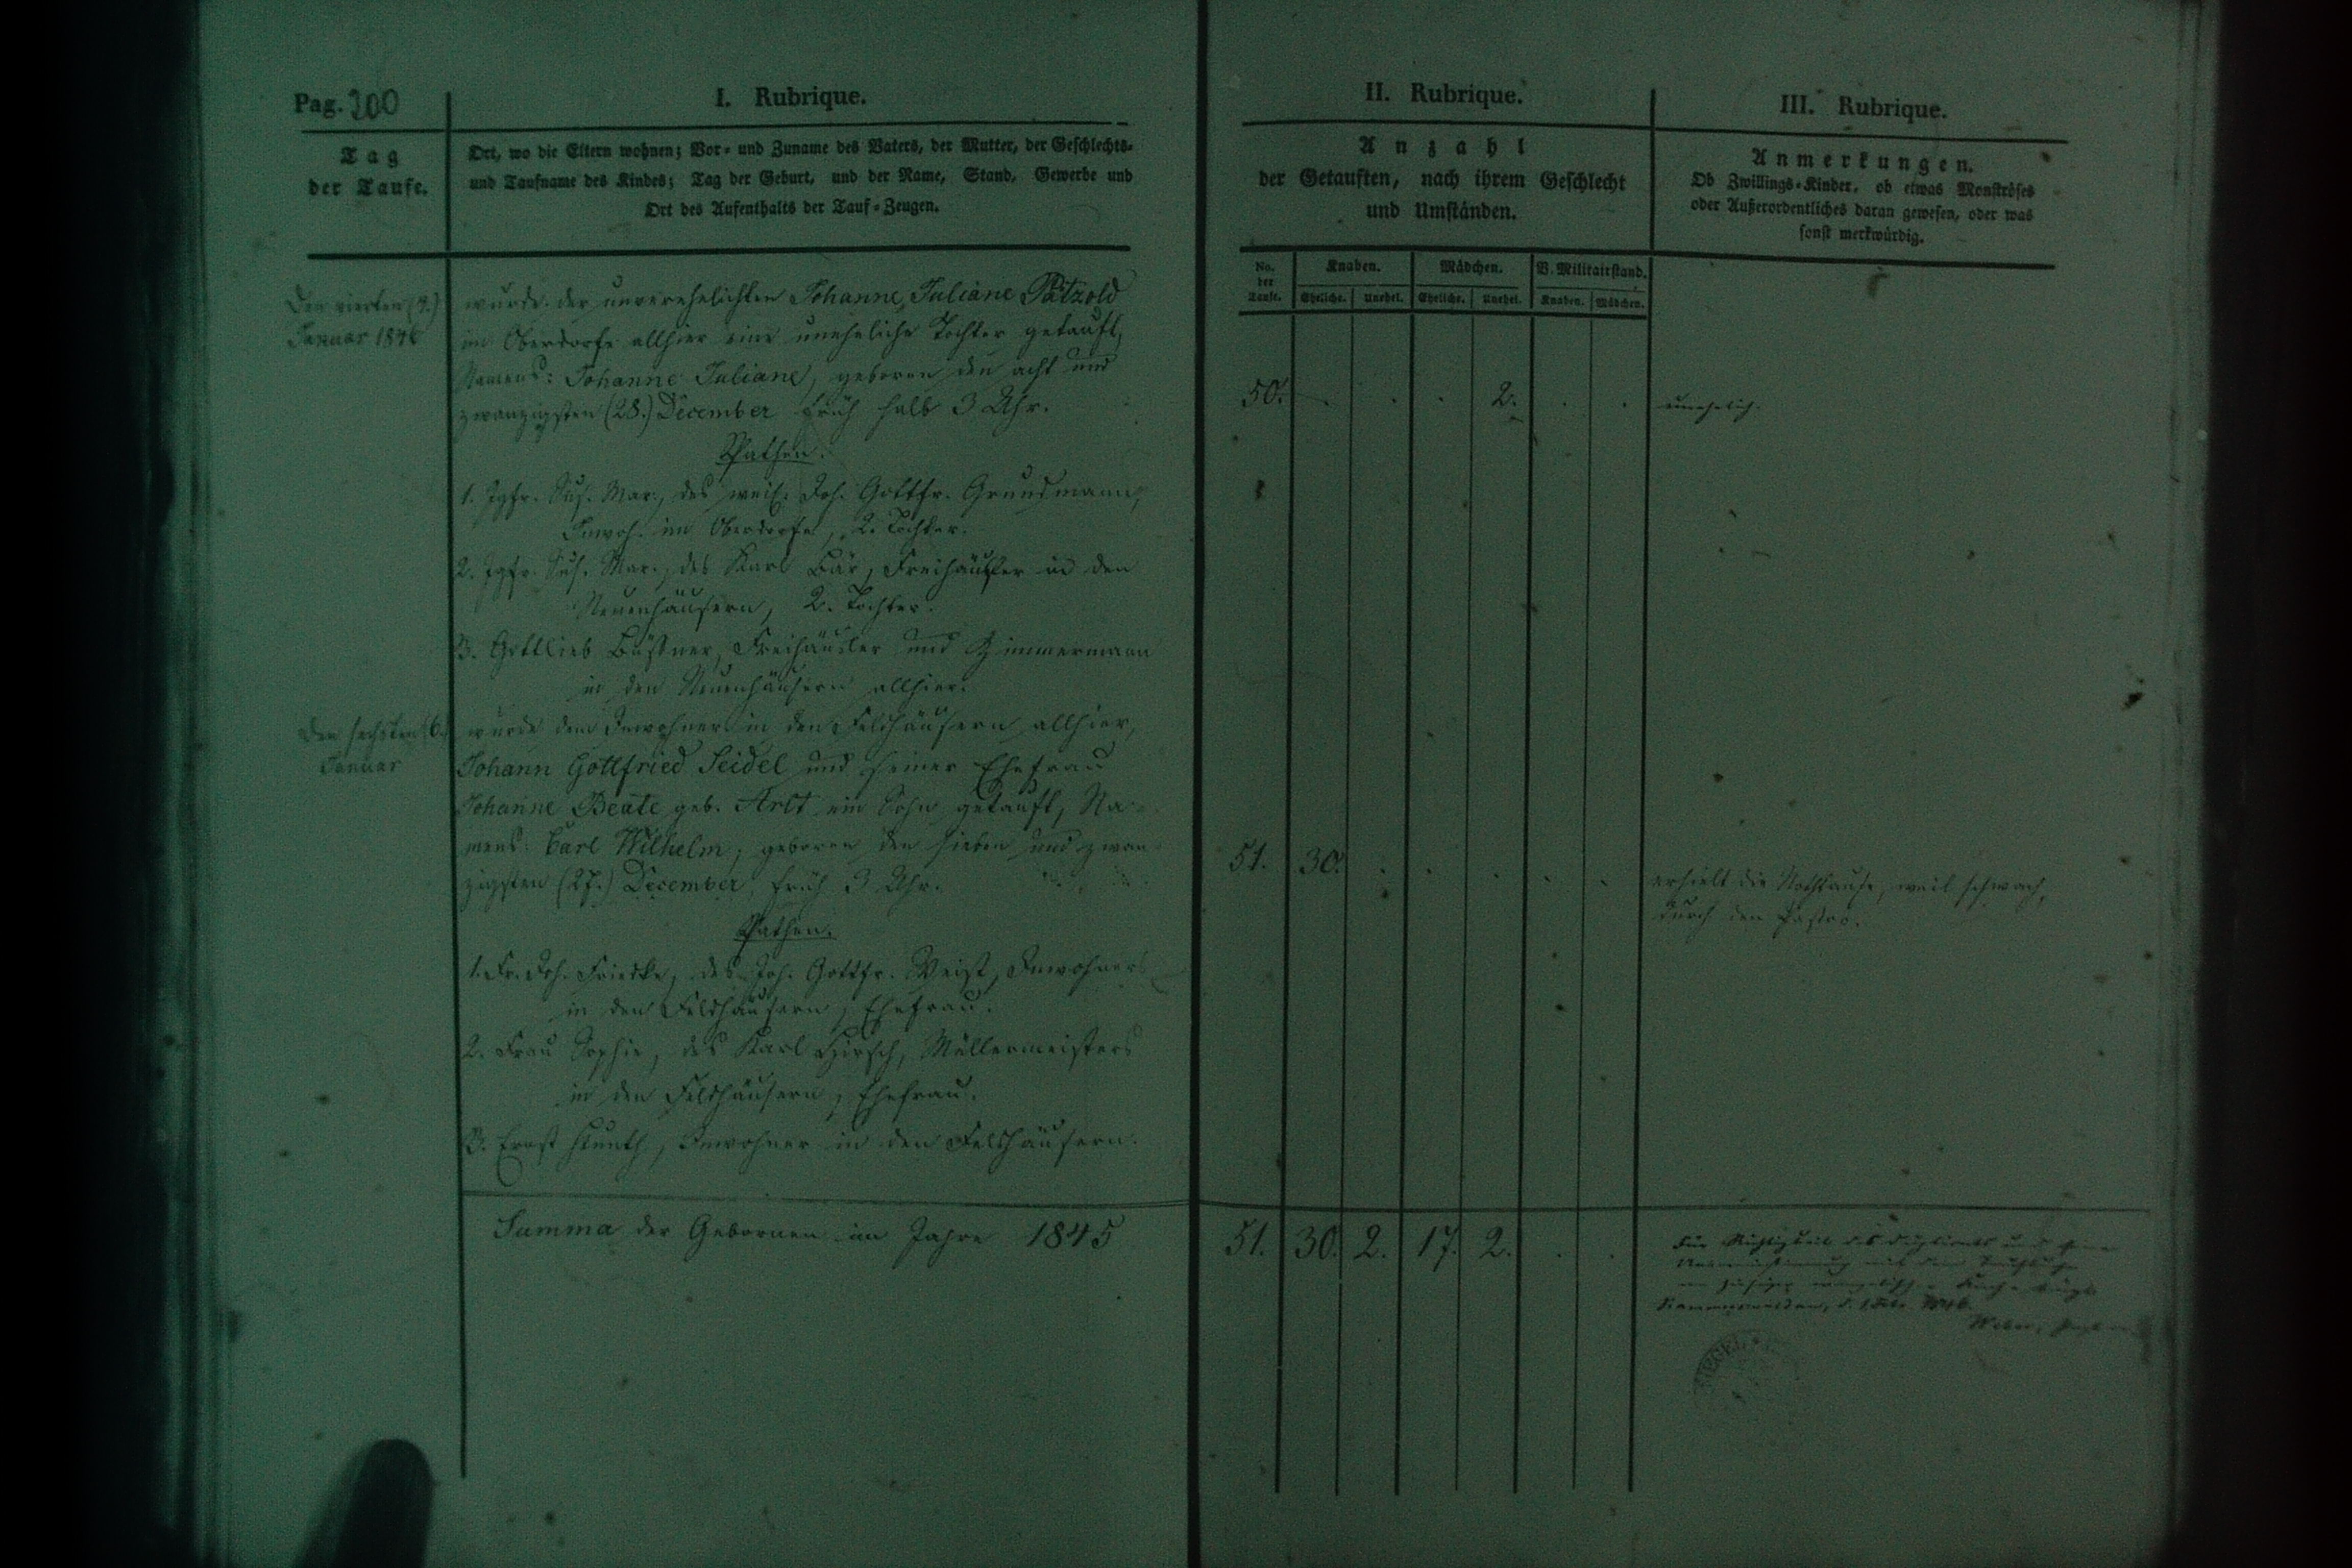 Pag. 200
I. Rubrique.
Tag
der Taufe.
Ort, wo die Eltern wohnen; Vor- und Zuname des Vaters, der Mutter, der Geschlechts-
und Taufname des Kindes; Tag der Geburt, und der Name, Stand, Gewerbe und
Ort des Aufenthalts der Tauf-Zeugen.
Den vierten (4.)
Januar 1846
wurde der unverehelichten Johanne Juliane Pätzold
im Oberdorfe allhier eine uneheliche Tochter getauft,
Namens: Johanne Juliane, geboren den acht und
zwanzigsten (28.) December früh halb 3 Uhr.
Pathen.
1. Jgfr. Sus. Mar., des weil. Joh. Gottfr. Grundmann,
Inwoh. im Oberdorfe, 2. Tochter.
2. Jgfr. Sus. Mar., des Karl Bär, Freihäusler in den
Neuenhäusern, 2. Tochter.
3. Gottlieb Büttner, Freihäusler und Zimmermann
in den Neuenhäusern allhier.
Den sechsten (6.)
Januar
wurde dem Inwohner in den Feldhäusern allhier,
Johann Gottfried Seidel und seiner Ehefrau
Johanne Beate geb. Arlt ein Sohn getauft, Na-
mens: Carl Wilhelm, geboren den sieben und zwan-
zigsten (27.) December, früh 3 Uhr.
Pathen.
1. Fr. Joh. Friedke, des Joh. Gottfr. Weist, Inwohners
in den Feldhäusern, Ehefrau.
2. Frau Sophie, des Karl Hirsch, Müllermeisters
in den Feldhäusern, Ehefrau.
3. Ernst, Inwohner in den Feldhäusern.
Summa der Gebornen im Jahre 1845
II. Rubrique.
Anzahl
der Getauften, nach ihrem Geschlecht
und Umständen.
No. der Taufe. Knaben. Mädchen. V. Militairstand.
Eheliche. Unehel. Eheliche. Unehel. Knaben. Mädchen.
50. . . . 2. . .
51. 30. . . . . .
51. 30. 2. 17. 2. . .
III. Rubrique.
Anmerkungen.
Ob Zwillings-Kinder, ob etwas Monströses
oder Außerordentliches daran gewesen, oder was
sonst merkwürdig.
unehelich.
erhielt die Nothtaufe, weil schwach,
durch den Pastor.
Für Richtigkeit des Duplicats und seine
Uebereinstimmung mit dem